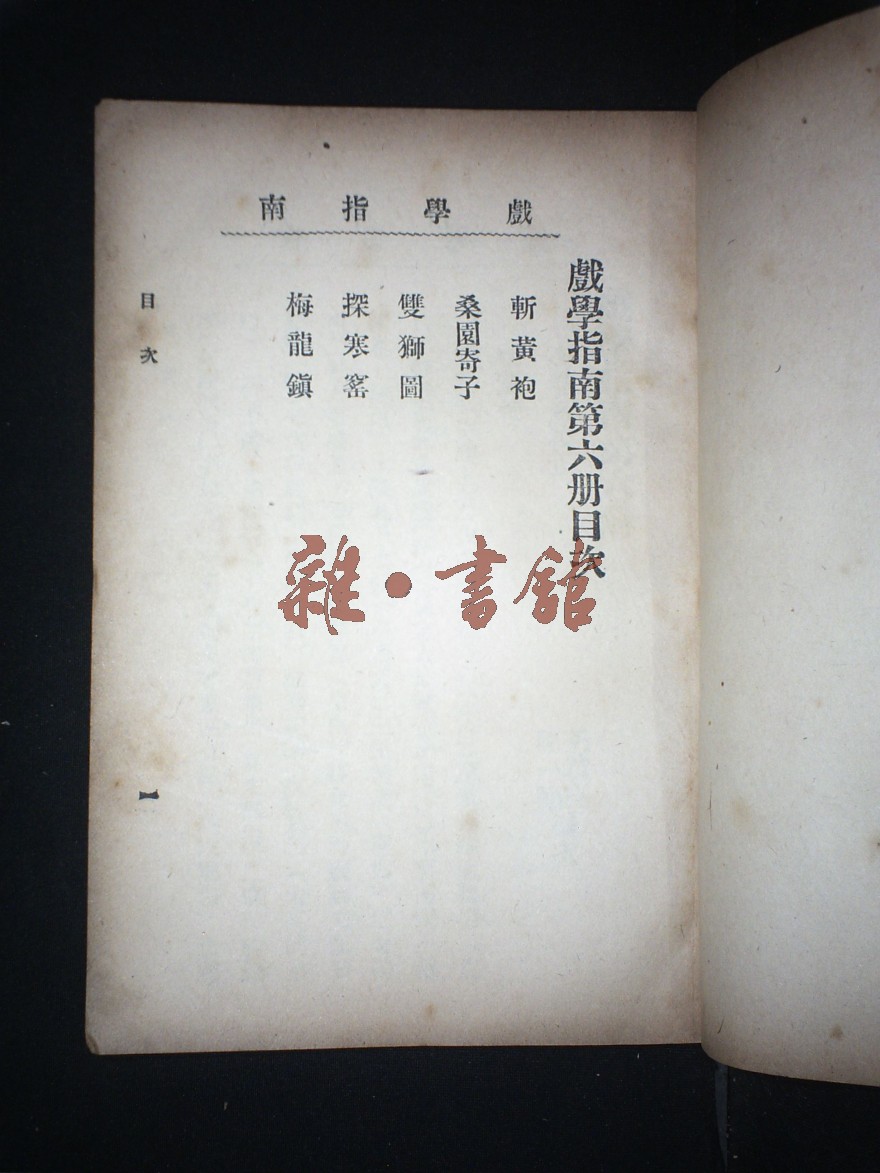 戲學指南
戲學指南第六册目次
斬黃袍
桑園寄子
雙獅圖
探寒窰
梅龍鎭
目次
一
雜·書館